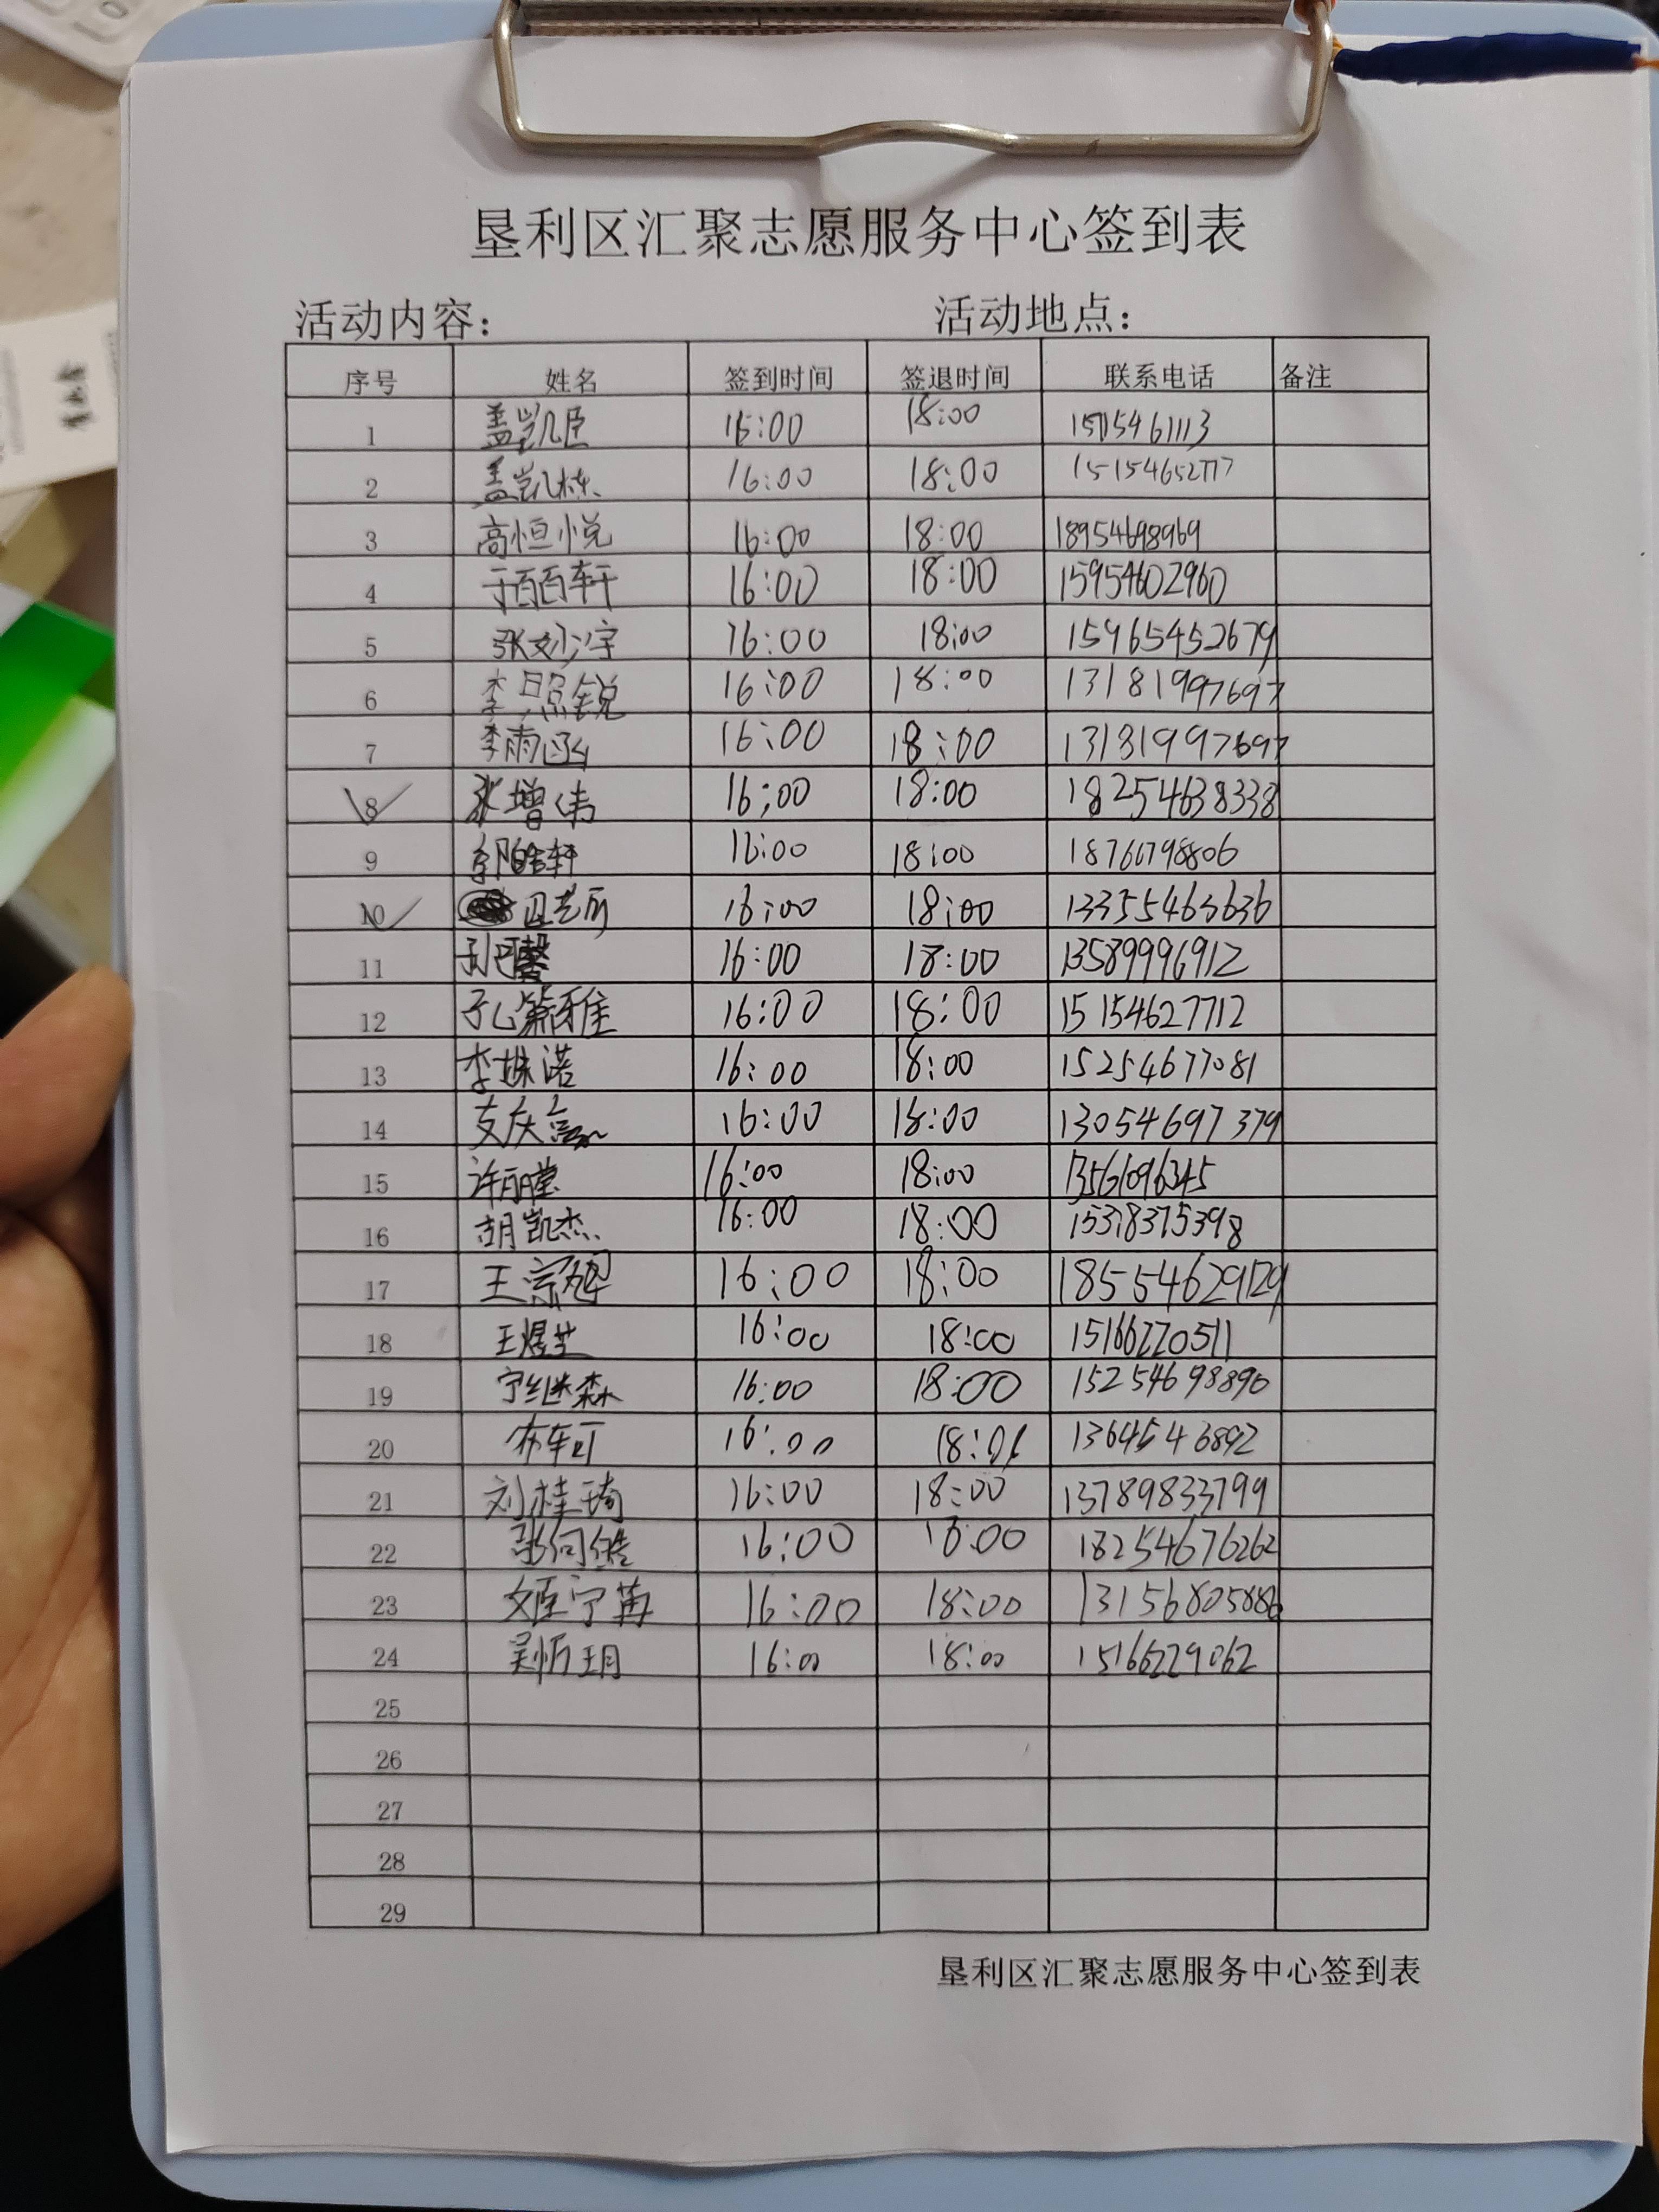 垦利区汇聚志愿服务中心签到表
活动内容： 活动地点：
序号 姓名 签到时间 签退时间 联系电话 备注
1 盖凯臣 16:00 18:00
2 盖凯栋 16:00 18:00 15154652777
3 高恒悦 16:00 18:00 18954698969
4 于百百轩 16:00 18:00 15954602960
5 张妙宇 16:00 18:00 15965452679
6 李照锐 16:00 18:00 13181997697
7 李雨函 16:00 18:00 13181997697
8 张增伟 16:00 18:00 18254638338
9 郭皓轩 16:00 18:00 18766798806
10 16:00 18:00 13355463636
11 16:00 18:00 13589996912
12 孔箫雅 16:00 18:00 15154627712
13 李姝诺 16:00 18:00 15254677081
14 16:00 18:00 13054697379
15 许丽莹 16:00 18:00 13561096345
16 胡凯杰 16:00 18:00 15378375398
17 16:00 18:00 18554629129
18 王煜芝 16:00 18:00 15166220511
19 宁继森 16:00 18:00 15254698890
20 布车可 16:00 18:01 13645446892
21 刘桂琦 16:00 18:00 13789833799
22 16:00 18:00 18254676262
23 姬宁苒 16:00 18:00 13156805886
24 吴忻玥 16:00 18:00 15166229062
25
26
27
28
29
垦利区汇聚志愿服务中心签到表